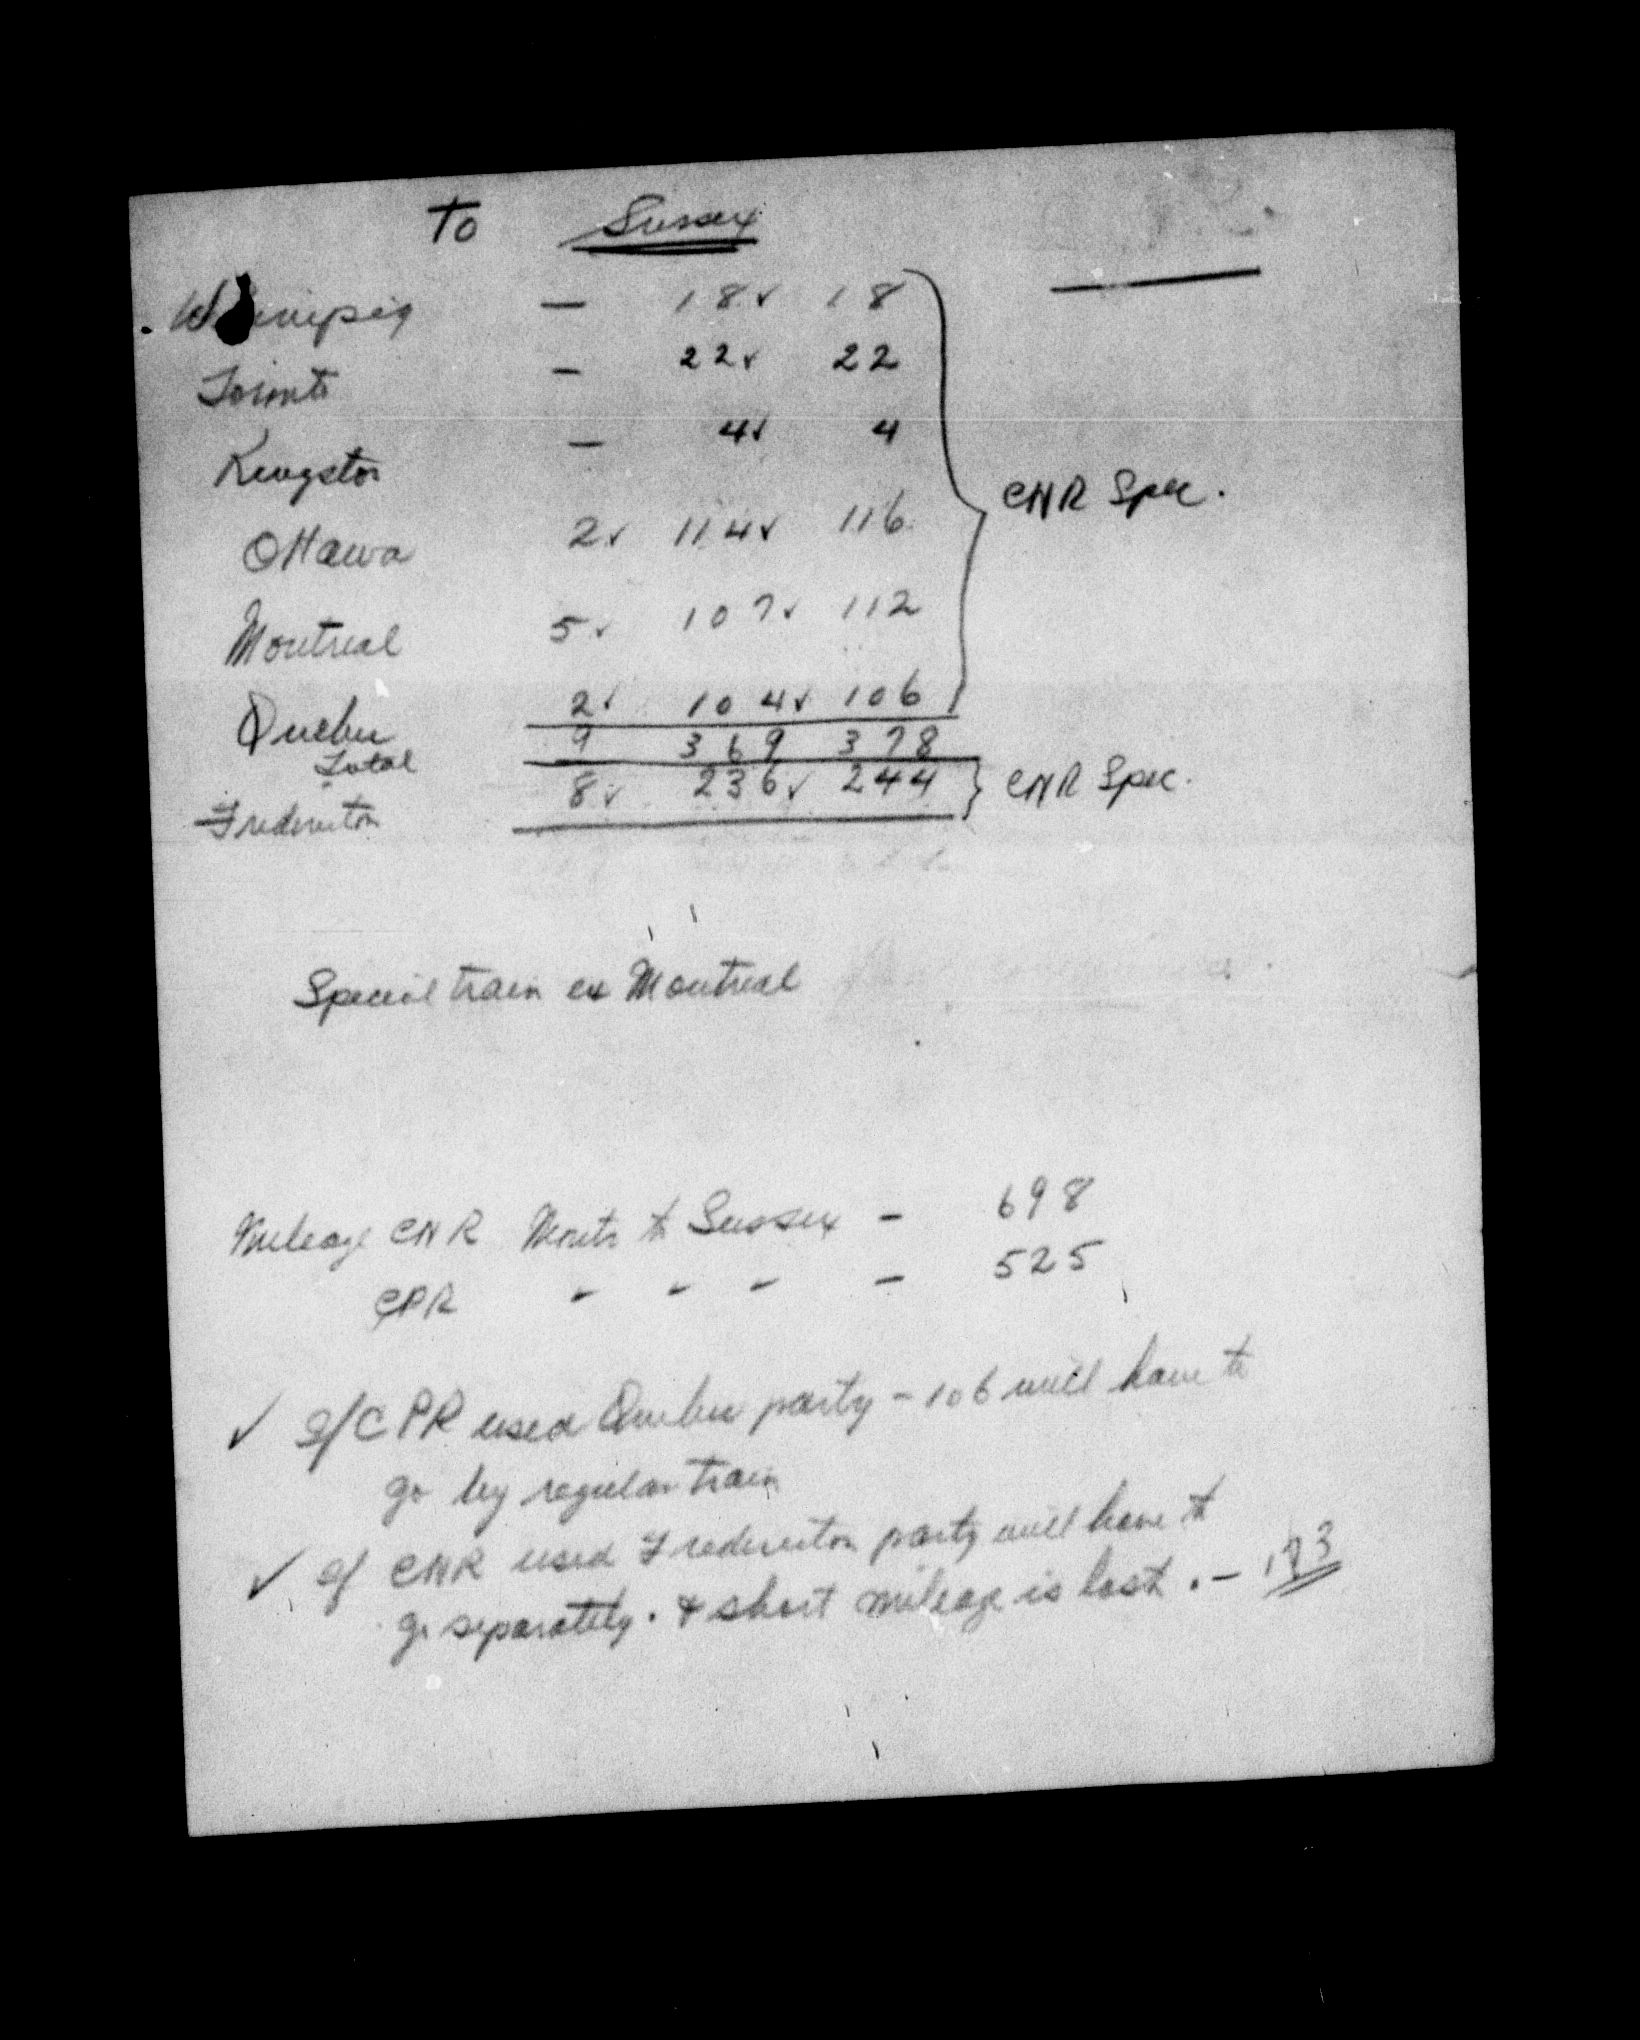 To Sussex
Winnipeg — 18✓ 18
Toronto — 22✓ 22
Kingston — 4✓ 4
CNR Spec.
Ottawa 2✓ 114✓ 116
Montreal 5✓ 107✓ 112
Quebec 2✓ 104✓ 106
Total 9 369 378
Fredericton 8✓ 236✓ 244 CNR Spec.
Special train ex Montreal
Mileage CNR Montr to Sussex - 698
CPR " " " - 525
✓ If CPR used Quebec party - 106 will have to
go by regular train
✓ If CNR used Fredericton party will have to
go separately. & short mileage is lost. - 173